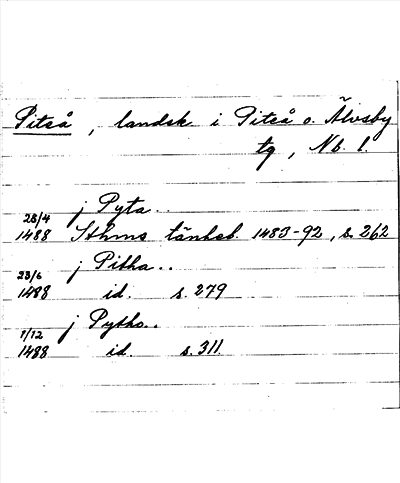 Piteå, landsk i Piteå o. Älvsby
tg, Nb. l.
j Pyta..
28/4
1488 Sthms tänkeb. 1483-92, s. 262
j Pitha..
28/6
1488 id. s. 279
j Pytho..
1/12
1488 id. s. 311